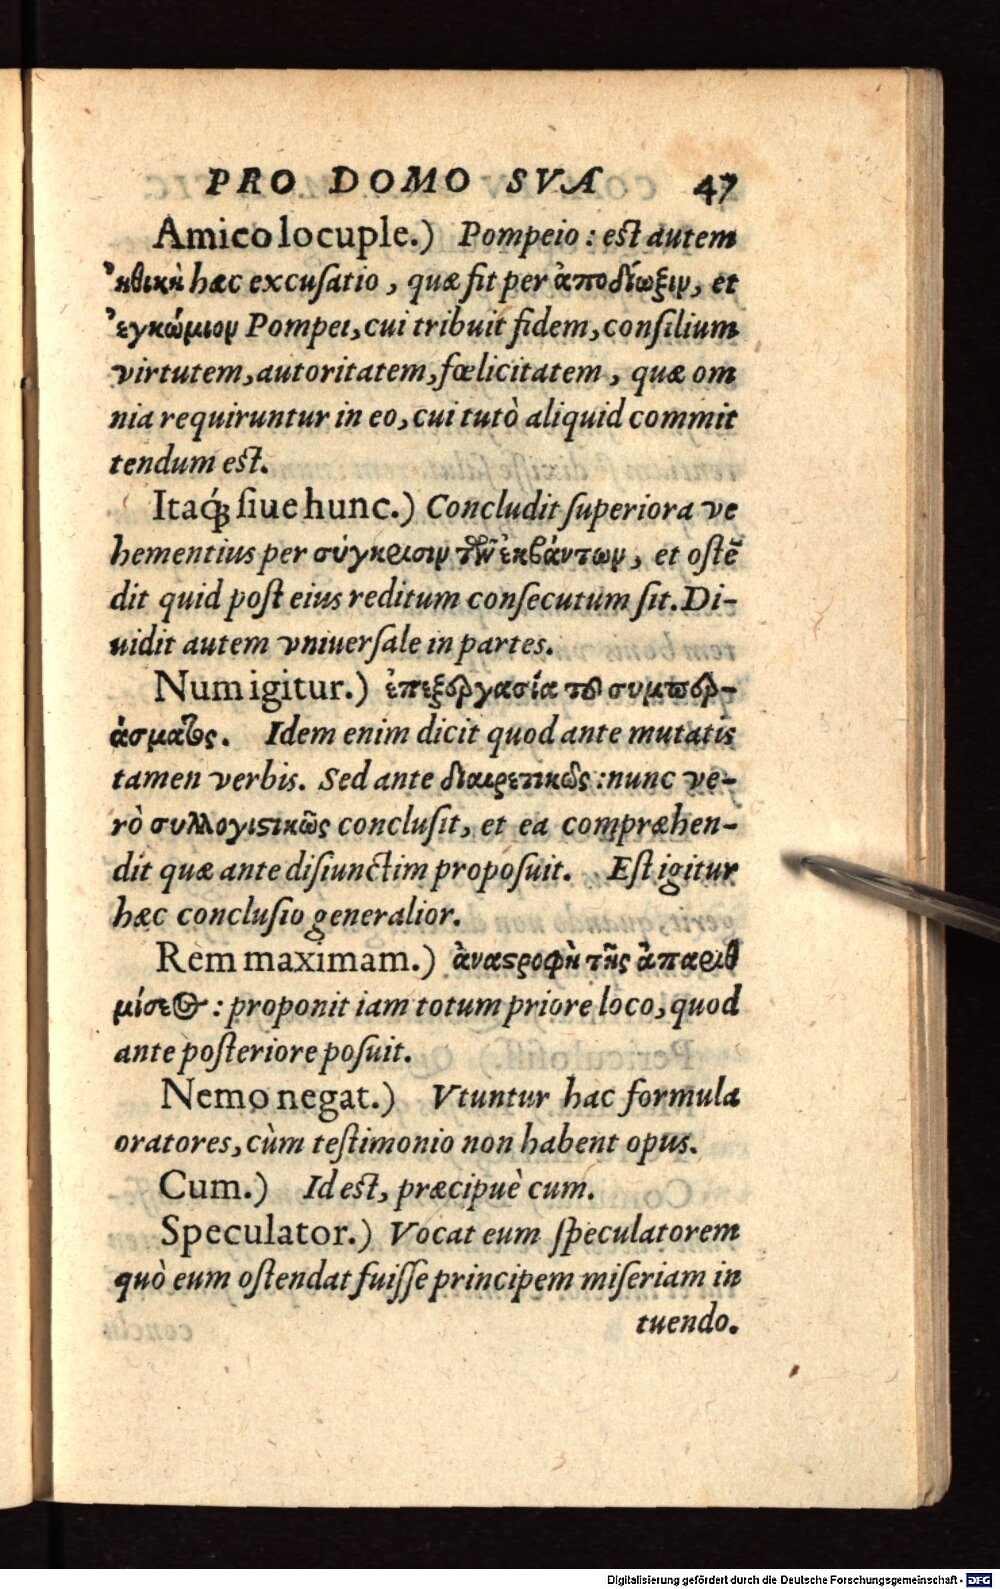 PRO DOMO SVA 47
Amico locuple.) Pompeio : est autem
ἠθικὴ hæc excusatio , quæ fit per ἀποδίωξιν, et
ἐγκώμιον Pompei, cui tribuit fidem, consilium
virtutem, autoritatem, fœlicitatem , quæ om
nia requiruntur in eo, cui tutò aliquid commit
tendum est.
Itaq́ꝫ siue hunc.) Concludit superiora ve
hementius per σύγκρισιν τῶν ἐκβάντων, et ostē
dit quid post eius reditum consecutum sit. Di-
uidit autem vniuersale in partes.
Num igitur.) ἐπεξεργασία τοῦ συμπερ-
άσματος. Idem enim dicit quod ante mutatis
tamen verbis. Sed ante διαιρετικῶς : nunc ve-
rò συλλογιστικῶς conclusit, et ea compræhen-
dit quæ ante disiunctim proposuit. Est igitur
hæc conclusio generalior.
Rem maximam.) ἀναστροφὴ τῆς ἀπαριθ
μίσεος : proponit iam totum priore loco, quod
ante posteriore posuit.
Nemo negat.) Vtuntur hac formula
oratores, cùm testimonio non habent opus.
Cum.) Id est, præcipuè cum.
Speculator.) Vocat eum speculatorem
quò eum ostendat fuisse principem miseriam in
tuendo.
Digitalisierung gefördert durch die Deutsche Forschungsgemeinschaft - DFG